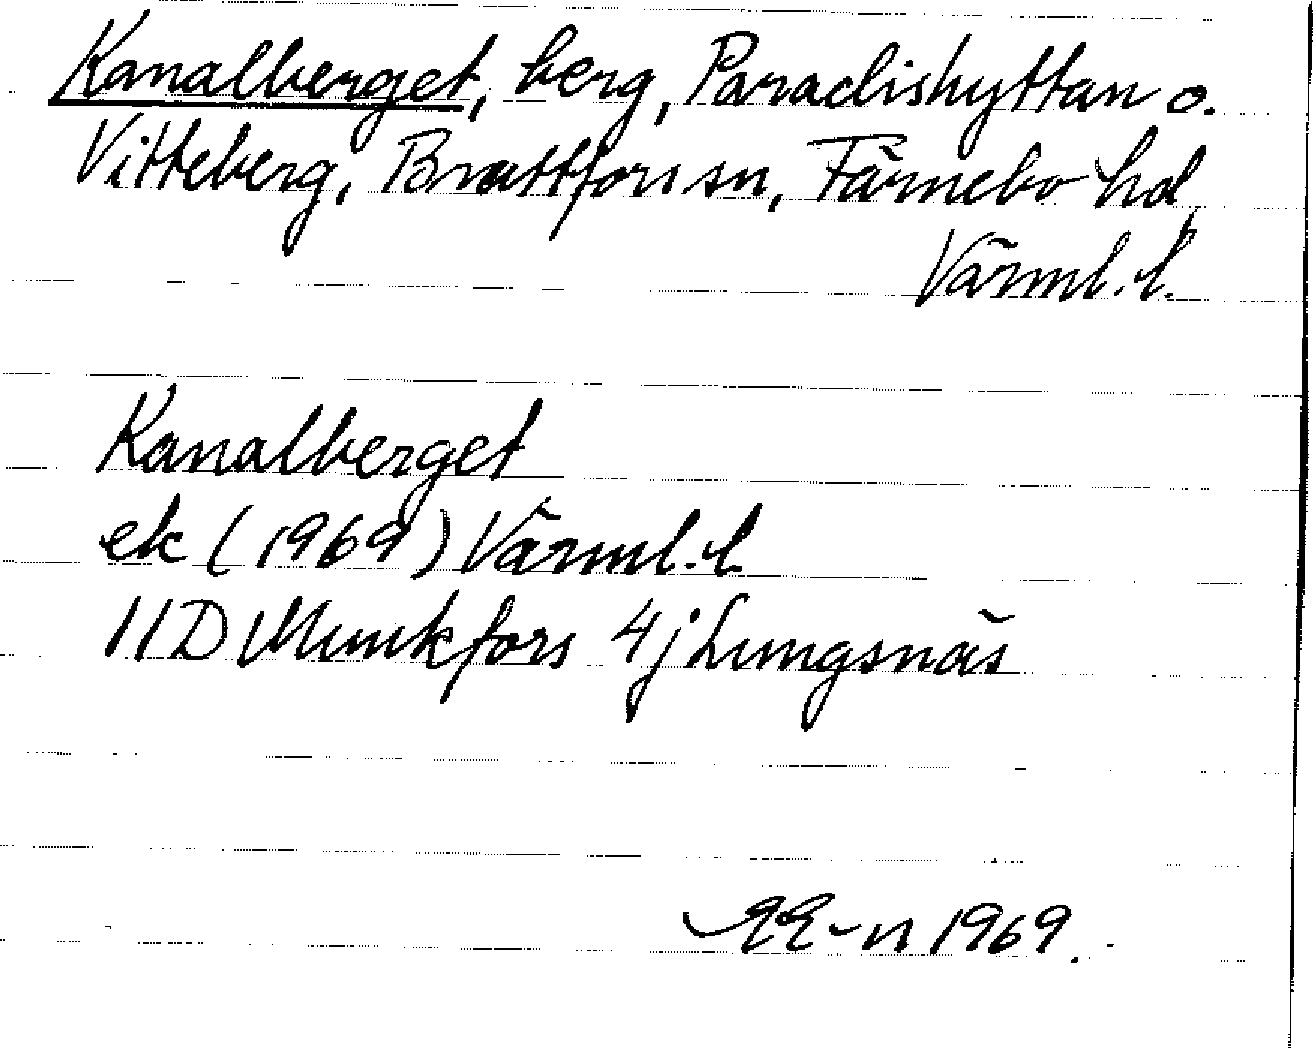 Kanalberget, berg, Paradishyttan o.
Vitteberg, Brattfors sn, Färnebo hd,
Värml. l.
Kanalberget
ek (1969) Värml. l.
11D Munkfors 4j Lungsnäs
EE-n 1969.